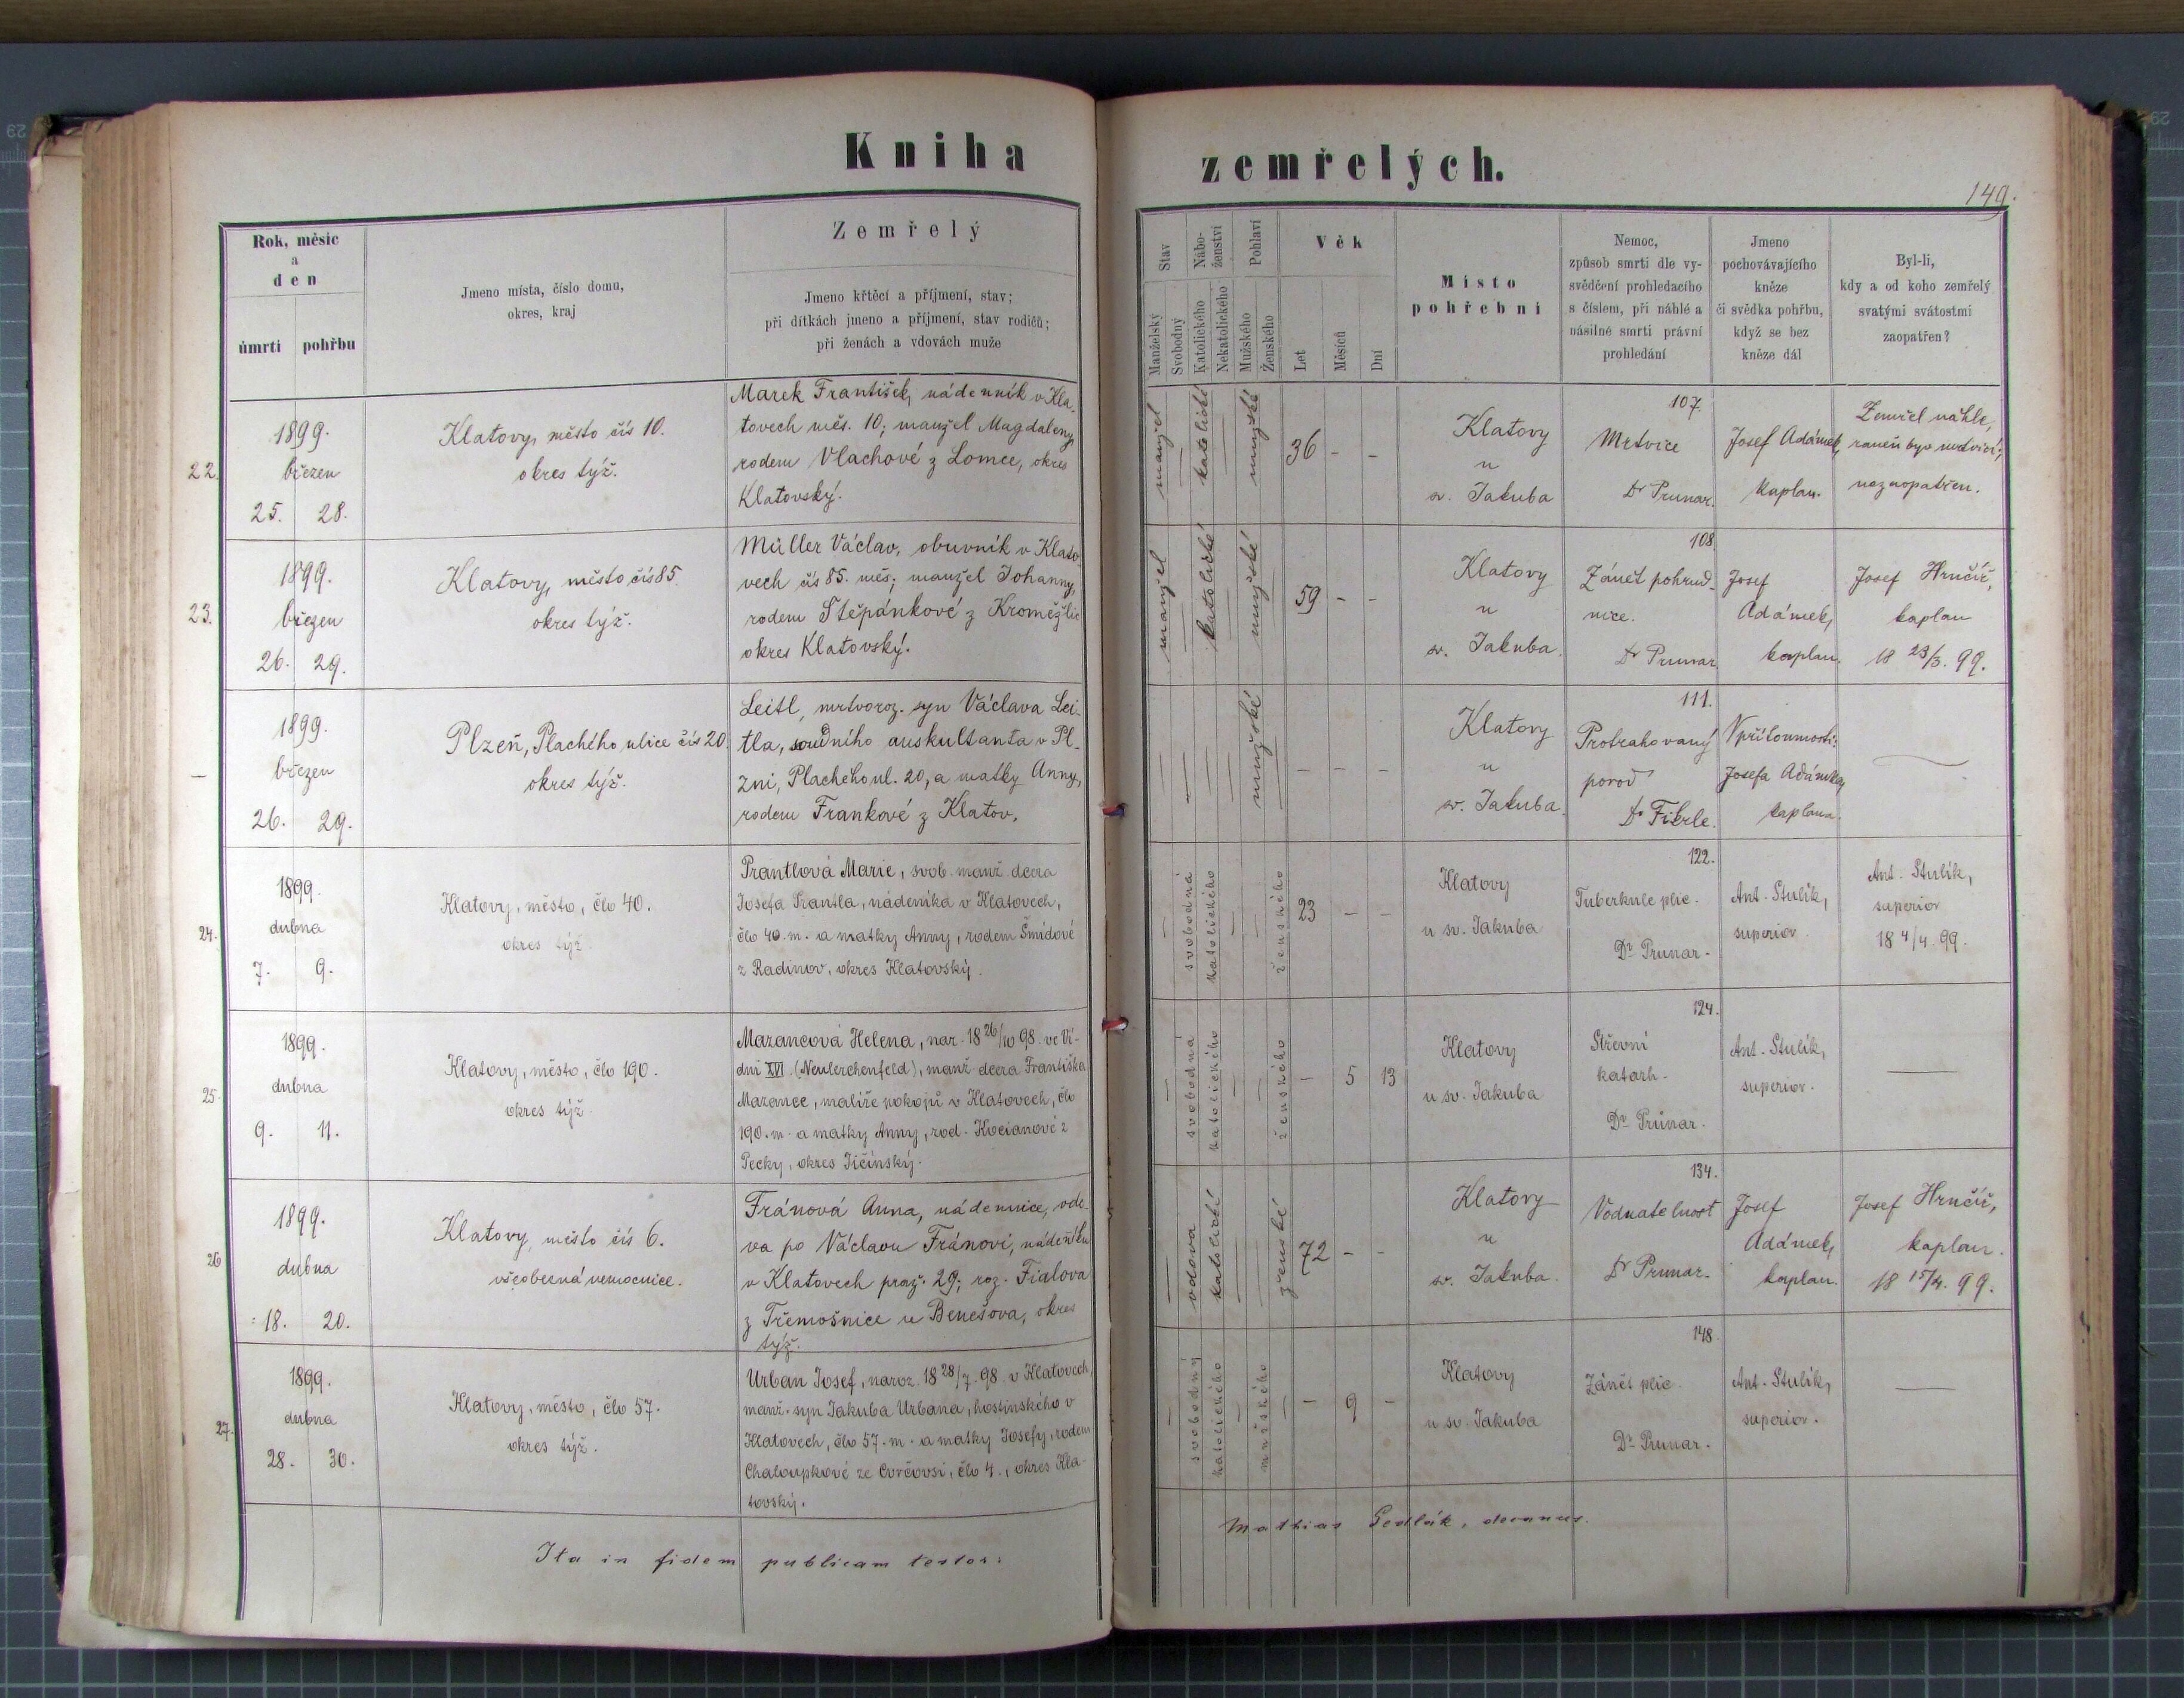 Kniha zemřelých.
149.
Rok, měsíc
a
den
úmrtí pohřbu
Jmeno místa, číslo domu,
okres, kraj
Zemřelý
Jmeno křtěcí a příjmení, stav;
při dítkách jmeno a příjmení, stav rodičů;
při ženách a vdovách muže
Stav
Manželský
Svobodný
Nábo-
ženství
Katolického
Nekatolického
Pohlaví
Mužského
Ženského
Věk
Let
Měsíců
Dní
Místo
pohřební
Nemoc,
způsob smrti dle vy-
svědčení prohledacího
s číslem, při náhlé a
násilné smrti právní
prohledání
Jmeno
pochovávajícího
kněze
či svědka pohřbu,
když se bez
kněze dál
Byl-li,
kdy a od koho zemřelý
svatými svátostmi
zaopatřen?
22.
1899.
březen
25. 28.
Klatovy, město čís 10.
okres týž.
Marek František, nádenník v Kla-
tovech měs. 10; manžel Magdaleny,
rodem Vlachové z Lomce, okres
Klatovský.
manžel
katolické
mužské
36 - -
Klatovy
u
sv. Jakuba
107.
Mrtvice
Dr Prunar.
Josef Adámek,
kaplan.
Zemřel náhle,
raněn byv mrtvicí;
nezaopatřen.
23.
1899.
březen
26. 29.
Klatovy, město čís 85.
okres týž.
Müller Václav, obuvník v Klato-
vech čís 85. měs; manžel Johanny,
rodem Štěpánkové z Kroměždic
okres Klatovský.
manžel
katolické
mužské
59 - -
Klatovy
u
sv. Jakuba.
108.
Zánět pohrud-
nice.
Dr Prunar
Josef
Adámek,
kaplan.
Josef Hrnčíř,
kaplan
18 23/3. 99.
—
1899.
březen
26. 29.
Plzeň, Plachého ulice čís 20.
okres týž.
Leitl, mrtvoroz. syn Václava Lei-
tla, soudního auskultanta v Pl-
zni, Plachého ul. 20, a matky Anny,
rodem Frankové z Klatov.
mužské
- - -
Klatovy
u
sv. Jakuba.
111.
Protrahovaný
porod
Dr Fikrle.
V přítomnosti:
Josefa Adámka,
kaplana.
—
24.
1899.
dubna
7. 9.
Klatovy, město, člo 40.
okres týž.
Prantlová Marie, svob. manž. dcera
Josefa Prantla, nádeníka v Klatovech,
člo 40. m. a matky Anny, rodem Šmídové
z Radinov, okres Klatovský.
svobodná
katolického
ženského
23 - -
Klatovy
u sv. Jakuba
122.
Tuberkule plic.
Dr Prunar.
Ant. Stulík,
superior.
Ant. Stulík,
superior
18 4/4. 99.
25.
1899.
dubna
9. 11.
Klatovy, město, člo 190.
okres týž.
Mazancová Helena, nar. 18 26/10 98. ve Ví-
dni XVI. (Neulerchenfeld), manž. dcera Františka
Mazance, malíře pokojů v Klatovech, člo
190. m. a matky Anny, rod. Kocianové z
Pecky, okres Jičínský.
svobodná
katolického
ženského
- 5 13
Klatovy
u sv. Jakuba
124.
Střevní
katarh.
Dr Prunar.
Ant. Stulík,
superior.
—
26
1899.
dubna
18. 20.
Klatovy, město čís 6.
všeobecná nemocnice.
Fránová Anna, nádennice, vdo-
va po Václavu Fránovi, nádeníku
v Klatovech praž. 29; roz. Fialova
z Třemošnice u Benešova, okres
týž.
vdova
katolické
ženské
72 - -
Klatovy
u
sv. Jakuba.
134.
Vodnatelnost
Dr Prunar.
Josef
Adámek,
kaplan.
Josef Hrnčíř,
kaplan.
18 15/4. 99.
27.
1899.
dubna
28. 30.
Klatovy, město, člo 57.
okres týž.
Urban Josef, naroz. 18 28/7. 98. v Klatovech,
manž. syn Jakuba Urbana, hostinského v
Klatovech, člo 57. m. a matky Josefy, rodem
Chaloupkové ze Cvrčovsi, člo 4., okres Kla-
tovský.
svobodný
katolického
mužského
- 9 -
Klatovy
u sv. Jakuba
148.
Zánět plic.
Dr Prunar.
Ant. Stulík,
superior.
—
Ita in fidem publicam testor:
Mathias Sedlák, decanus.